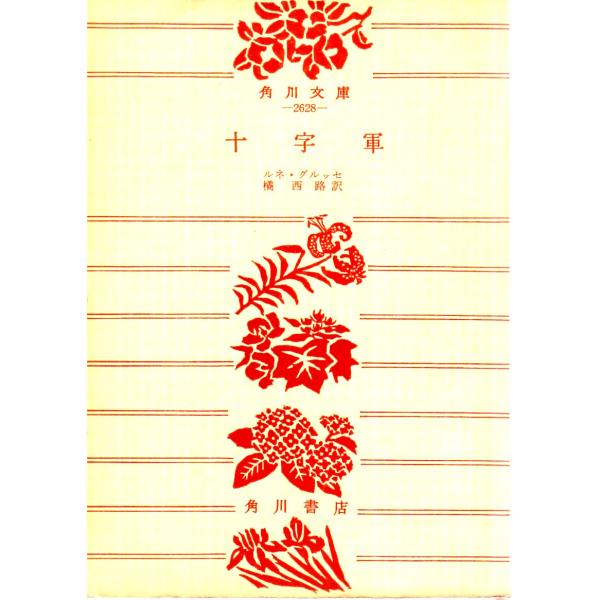 角川文庫
—2628—
十字軍
ルネ・グルッセ
橘西路訳
角川書店